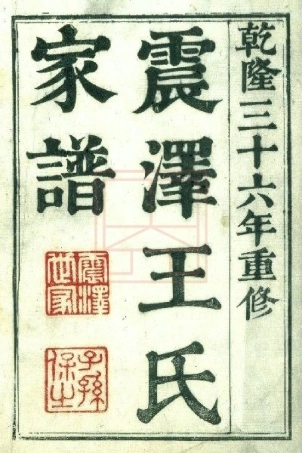 乾隆三十六年重修
震澤王氏
家譜
震澤世家
子孫保之